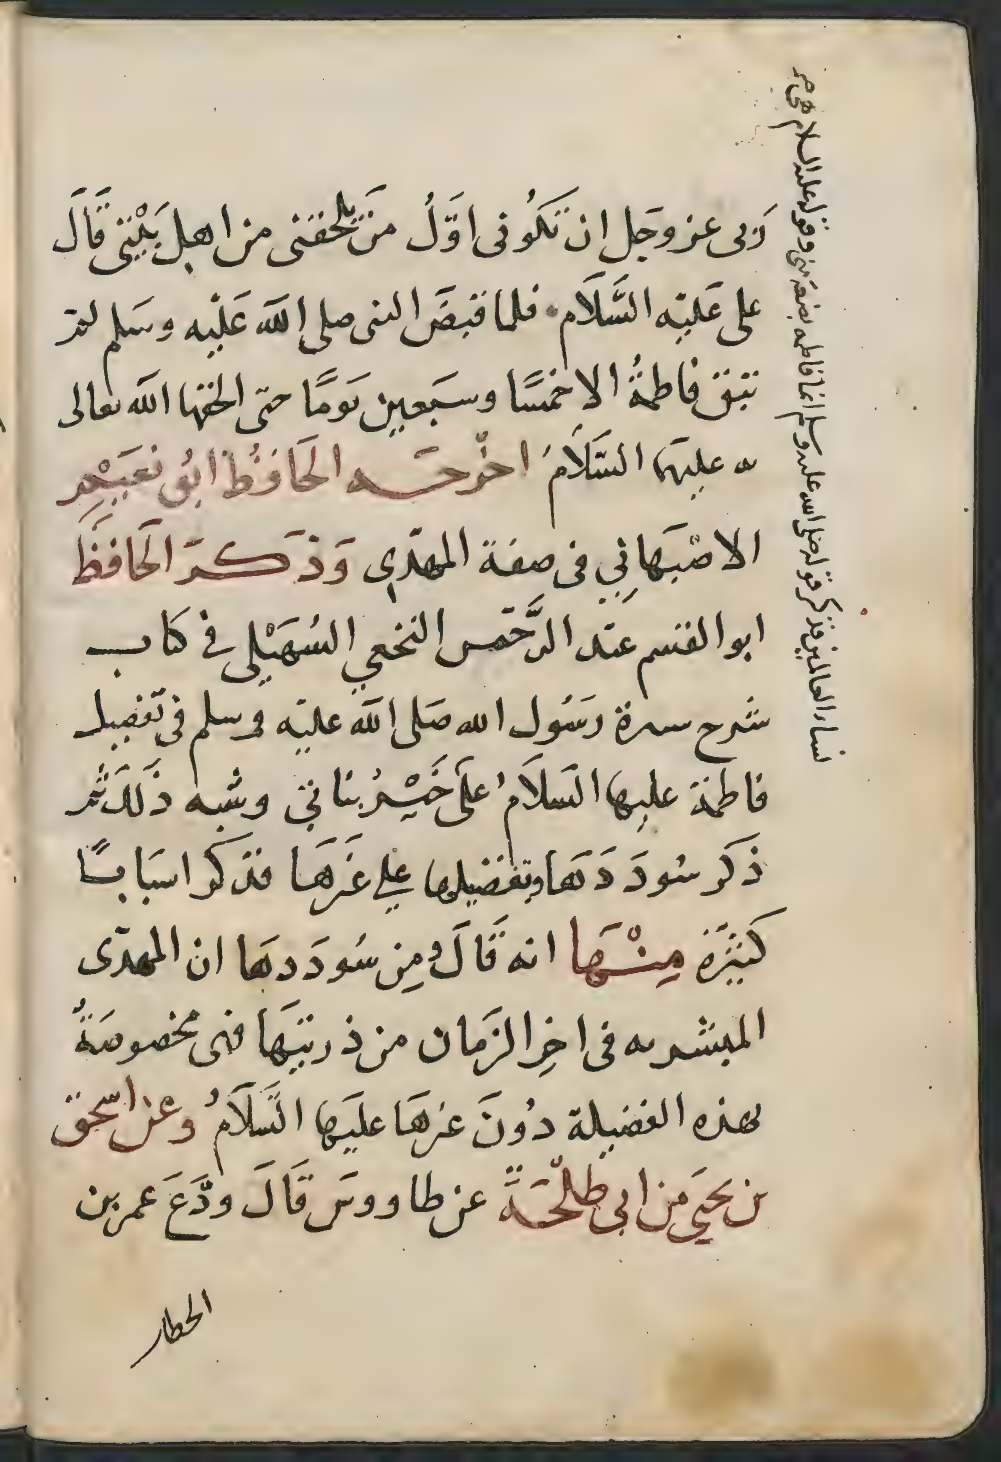 رَبى عز وجل ان تكُونى اوّلُ مَن يلحقنى من اهل بَيْتى قَالَ
على عَليْه السَّلَام. فلما قبضَ النبى صلى الله عَليْه وسَلم لم
تبق فاطمةُ الا خمسًا وسَبعين يَومًا حتى الحقها الله تعالى
به عليهَا السَّلَامُ اخرجَه الحَافظُ ابُو نعَيْمٍ
الاصْبَهانِي فى صفة المهدى وَذكرَ الحَافظَ
ابو القسم عبْد الرَّحمن النخعي السُهَيْلى فى كتاب
شرح سيرة رسَول الله صَلى الله عليْه وسلم فى تفضيل
فاطمة عليها السَلَامُ علَى خَيْرُ بناتى وشبه ذَلكَ ثم
ذكَر سُودَدَهَا وتفضيلها على غَيرَهَا فذكر اسبَابًا
كَثيرَة مِنْهَا انه قَالَ ومِن سُودَدهَا ان المهدى
المبشر به فى اخِر الزمان من ذريتهَا فهى مخصوصَةٌ
بهذه الفضيلة دُونَ غيرهَا عليهَا السَّلَامُ وعن اسحق
بن يحيَى بن ابى طلْحَةَ عن طاووسَ قَالَ ودَّعَ عمر بن
الخطاب
نساء العالمين فذكر قوله صلى الله عليه وسلم انما فاطمة بضعة منى وقوله عليه السلام هى خير